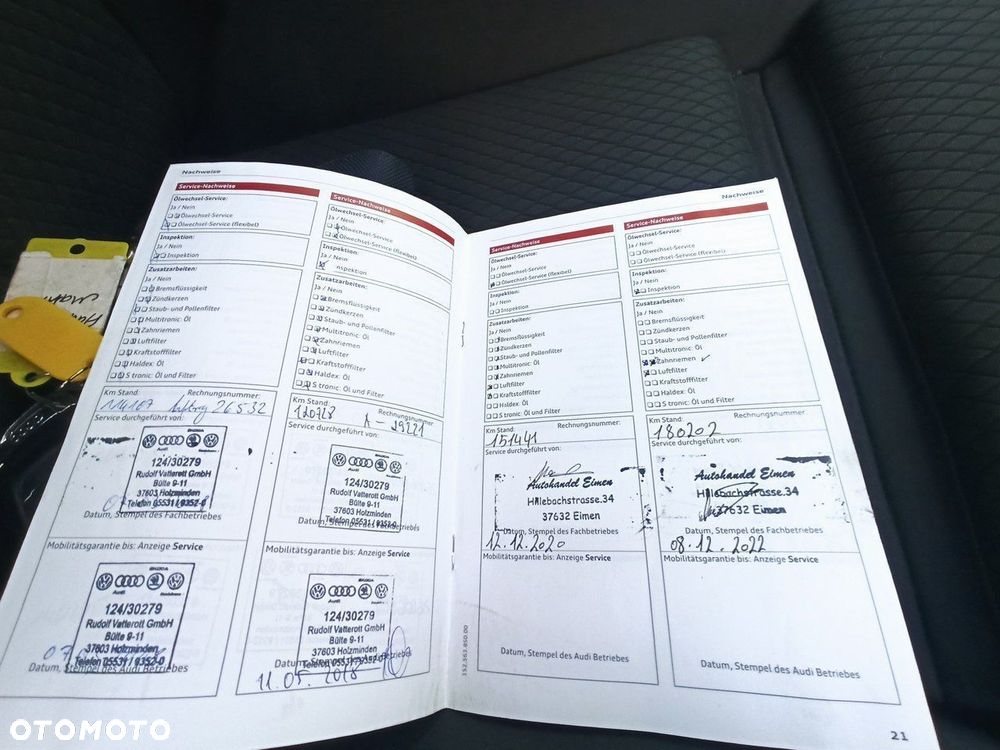 Nachweise
Service-Nachweise
Ölwechsel-Service:
Ja / Nein
Ölwechsel-Service
Ölwechsel-Service (flexibel)
Inspektion:
Ja / Nein
Inspektion
Zusatzarbeiten:
Ja / Nein
Bremsflüssigkeit
Zündkerzen
Staub- und Pollenfilter
Multitronic: Öl
Zahnriemen
Luftfilter
Kraftstofffilter
Haldex: Öl
S tronic: Öl und Filter
Km Stand: Rechnungsnummer:
114107 26532
Service durchgeführt von:
SKODA
Audi
124/30279
Rudolf Vatterott GmbH
Bülte 9-11
37603 Holzminden
Telefon 05531/9352-0
Datum, Stempel des Fachbetriebes
Mobilitätsgarantie bis: Anzeige Service
SKODA
Audi
124/30279
Rudolf Vatterott GmbH
Bülte 9-11
37603 Holzminden
Telefon 05531/9352-0
Datum, Stempel des Audi Betriebes
Service-Nachweise
Ölwechsel-Service:
Ja / Nein
Ölwechsel-Service
Ölwechsel-Service (flexibel)
Inspektion:
Ja / Nein
Inspektion
Zusatzarbeiten:
Ja / Nein
Bremsflüssigkeit
Zündkerzen
Staub- und Pollenfilter
Multitronic: Öl
Zahnriemen
Luftfilter
Kraftstofffilter
Haldex: Öl
S tronic: Öl und Filter
Km Stand: Rechnungsnummer:
120728
Service durchgeführt von:
SKODA
Audi
124/30279
Rudolf Vatterott GmbH
Bülte 9-11
37603 Holzminden
Telefon 05531/9352-0
Datum, Stempel des Fachbetriebes
Mobilitätsgarantie bis: Anzeige Service
SKODA
Audi
124/30279
Rudolf Vatterott GmbH
Bülte 9-11
37603 Holzminden
Telefon 05531/9352-0
Datum, Stempel des Audi Betriebes
11.05.2018
Nachweise
Service-Nachweise
Ölwechsel-Service:
Ja / Nein
Ölwechsel-Service
Ölwechsel-Service (flexibel)
Inspektion:
Ja / Nein
Inspektion
Zusatzarbeiten:
Ja / Nein
Bremsflüssigkeit
Zündkerzen
Staub- und Pollenfilter
Multitronic: Öl
Zahnriemen
Luftfilter
Kraftstofffilter
Haldex: Öl
S tronic: Öl und Filter
Km Stand: Rechnungsnummer:
151441
Service durchgeführt von:
Autohandel Eimen
Hillebachstrasse.34
37632 Eimen
Datum, Stempel des Fachbetriebes
12.12.2020
Mobilitätsgarantie bis: Anzeige Service
Datum, Stempel des Audi Betriebes
152.562.850.00
Service-Nachweise
Ölwechsel-Service:
Ja / Nein
Ölwechsel-Service
Ölwechsel-Service (flexibel)
Inspektion:
Ja / Nein
Inspektion
Zusatzarbeiten:
Ja / Nein
Bremsflüssigkeit
Zündkerzen
Staub- und Pollenfilter
Multitronic: Öl
Zahnriemen
Luftfilter
Kraftstofffilter
Haldex: Öl
S tronic: Öl und Filter
Km Stand: Rechnungsnummer:
180202
Service durchgeführt von:
Autohandel Eimen
Hillebachstrasse.34
37632 Eimen
Datum, Stempel des Fachbetriebes
08.12.2022
Mobilitätsgarantie bis: Anzeige Service
Datum, Stempel des Audi Betriebes
21
OTOMOTO